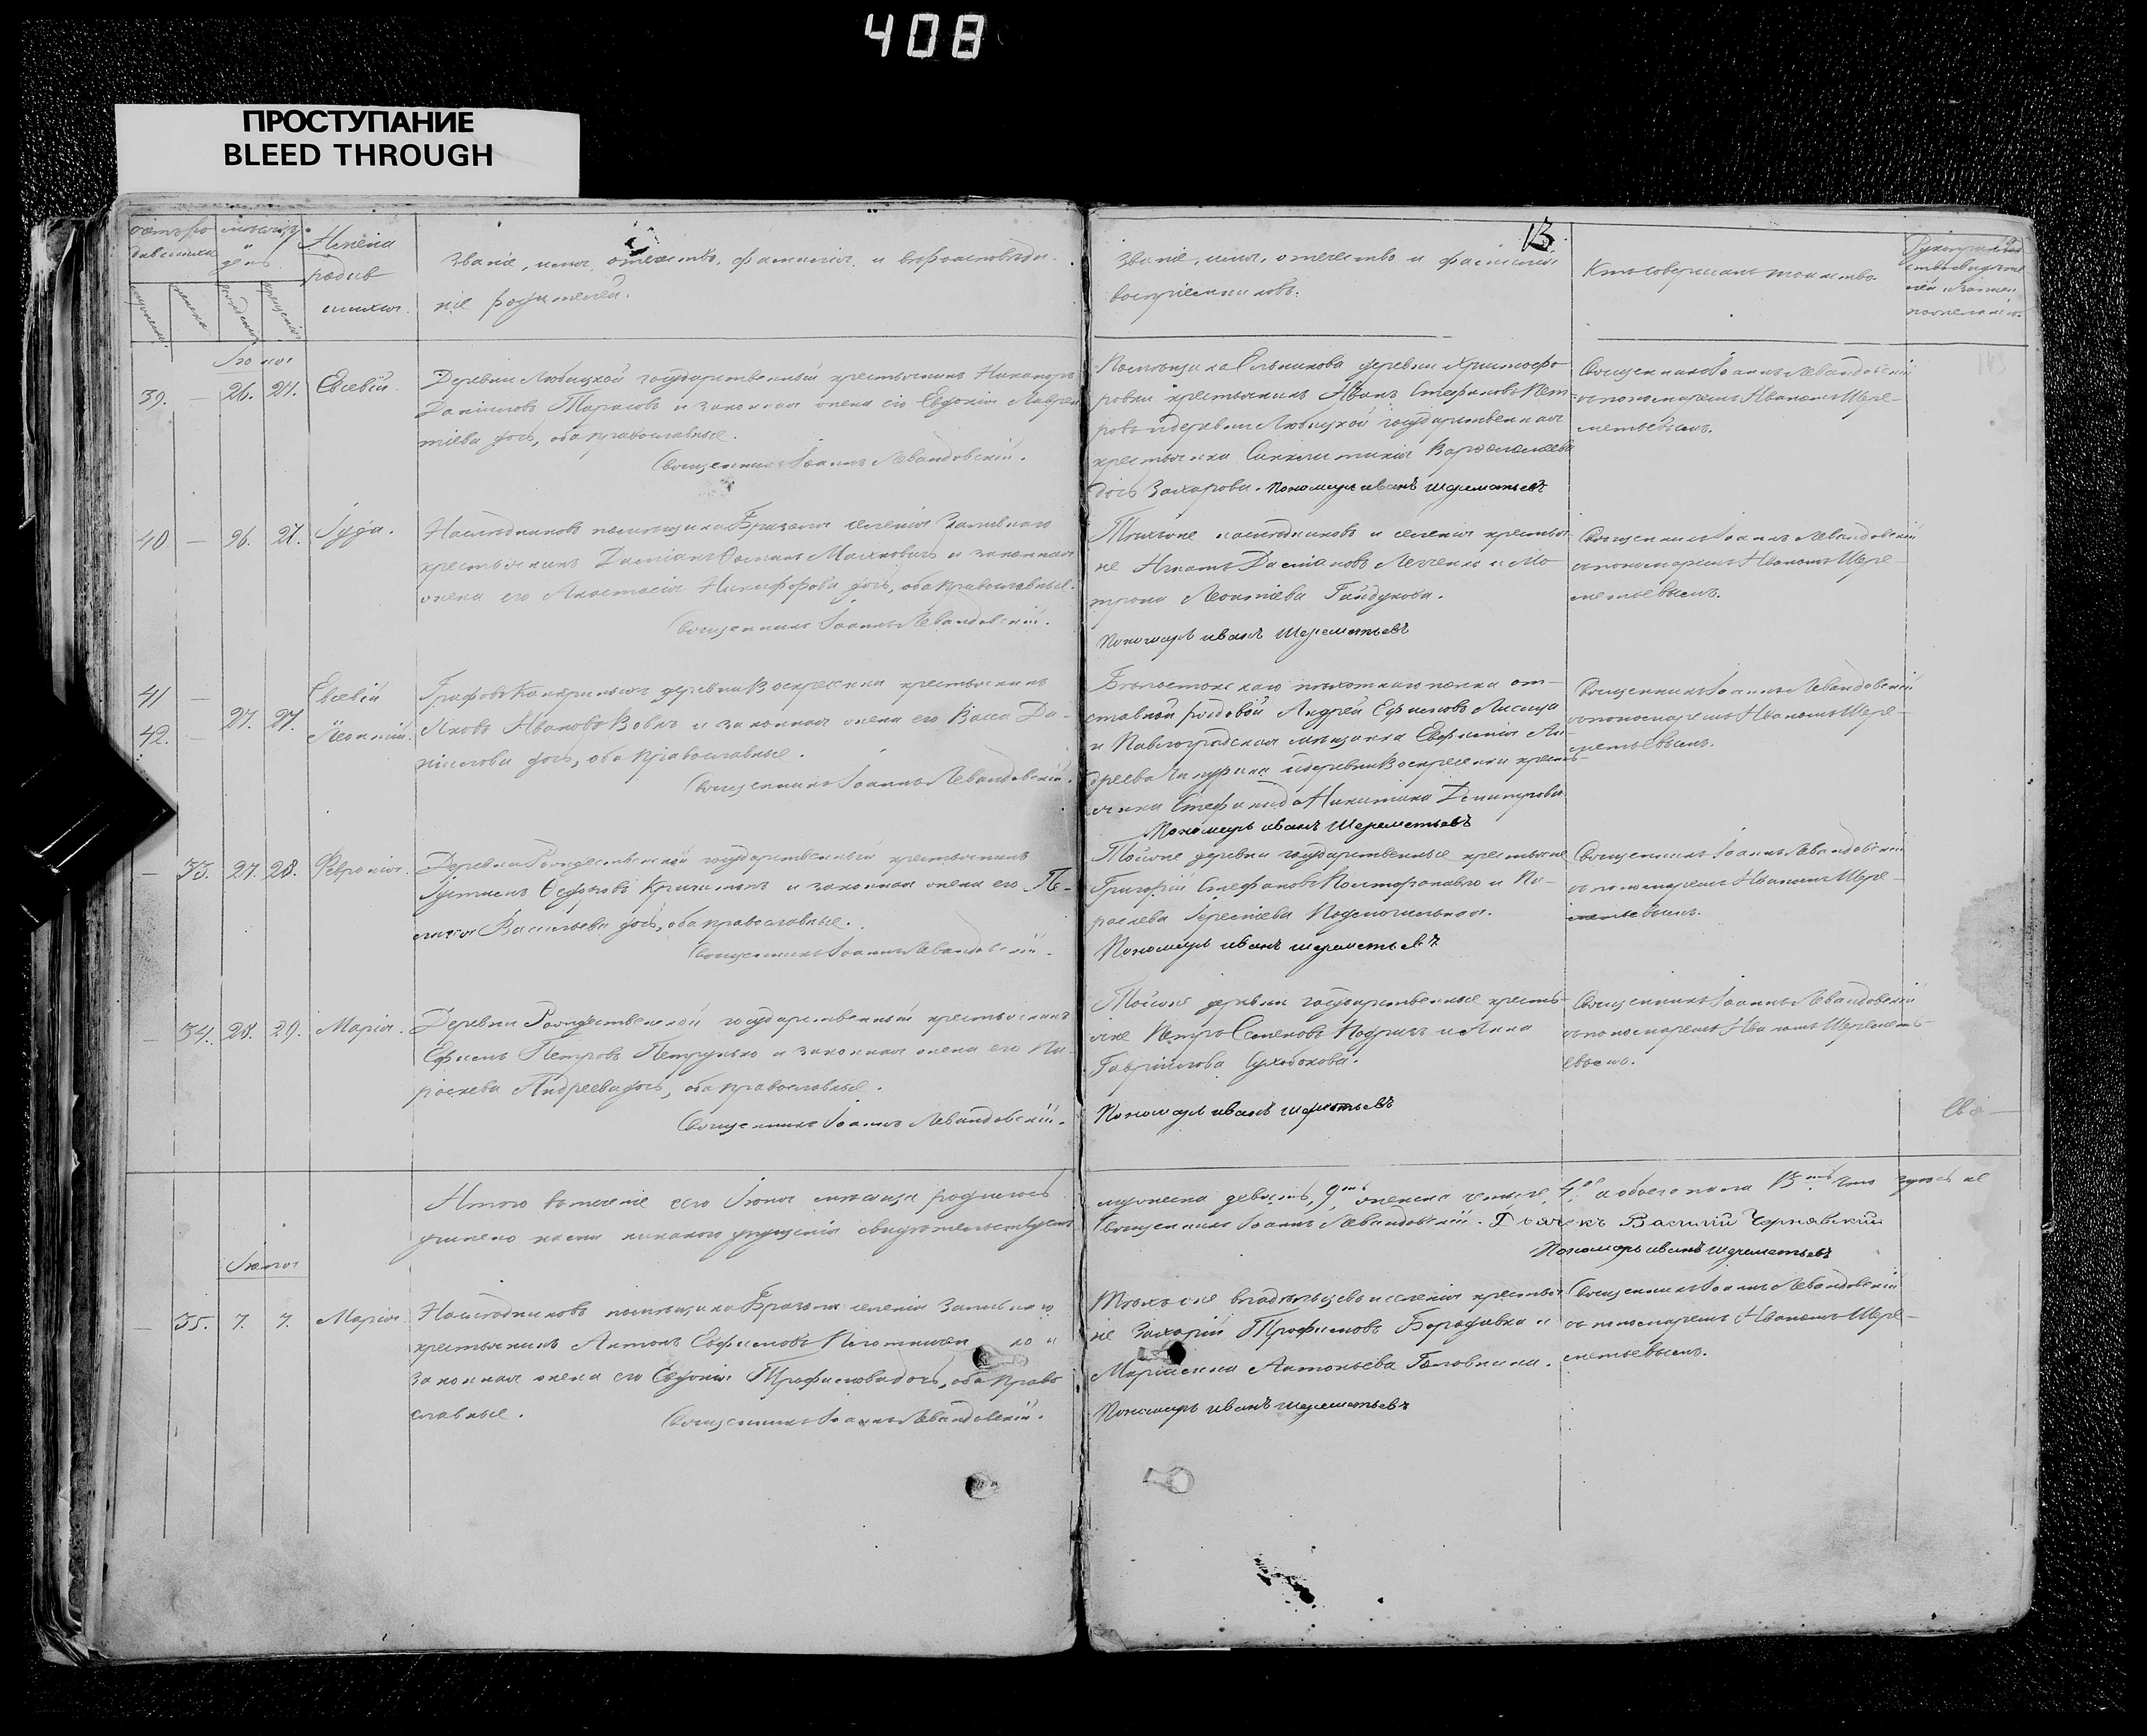 408
ПРОСТУПАНИЕ
BLEED THROUGH
13
Имена
родив
шихся.
Званіе, имя, отечество, фамилія, и вѣроисповѣда-
ніе родителей.
Званіе, имя, отечество и фамилія
воспріемниковъ.
Кто совершалъ таинство.
Іюня
39. — 26. 27. Евсевій.
Деревни Любицкой государственный крестьянинъ Никаноръ
Даніиловъ Тарасовъ и законная жена его Евдокія Лаврен
тіева дочь, оба православные.
Священникъ Іоаннъ Левандовскій.
Помѣщика Сльникова деревни Христофо
ровки крестьянинъ Иванъ Стефановъ Пет
ровъ и деревни Любицкой государственная
крестьянка Синклитикія Варѳоломеева
дочь Захарова. Пономарь иванъ шереметьевъ
Священникъ Іоаннъ Левандовскій
съ пономаремъ Иваномъ Шере-
метьевымъ.
40. — 26. 27. Іуда.
Наслѣдниковъ помѣщика Бразоля селенія Заливнаго
крестьянинъ Даміанъ Ѳоминъ Махновичъ и законная
жена его Анастасія Никифорова дочь, оба православные.
Священникъ Іоаннъ Левандовскій.
Тѣхъже наслѣдниковъ и селенія крестья
не Игнатъ Даміановъ Лехенко и Ма
трона Леонтіева Гайдукова.
Пономарь иванъ Шереметьевъ
Священникъ Іоаннъ Левандовскій
съ пономаремъ Иваномъ Шере-
метьевымъ.
41 —
42. — 27. 27. Евсевій
Леонтій.
деревни Воскресенки крестьянинъ
Яковъ Ивановъ Вовкъ и законная жена его Васса Да-
ніилова дочь, оба православные.
Священникъ Іоаннъ Левандовскій.
Бѣлостокскаго пѣхотнаго полка от-
ставной рядовой Андрей Ефимовъ Лисица
и Павлоградская мѣщанка Евфимія Ан
дреева и деревни Воскресенки кресть-
янка Стефанида Никитина Димитрова
Пономарь иванъ Шереметьевъ
Священникъ Іоаннъ Левандовскій
съ пономаремъ Иваномъ Шере-
метьевымъ.
— 33. 27. 28. Февронія.
Деревни Рождественской государственный крестьянинъ
Іустинъ Ѳедоровъ и законная жена его Пе-
лагія Васильева дочь, оба православные.
Священникъ Іоаннъ Левандовскій.
Тойже деревни государственные крестьяне
Григорій Стефановъ и Па-
раскева Подмогильная.
Пономарь иванъ шереметьевъ
Священникъ Іоаннъ Левандовскій
съ пономаремъ Иваномъ Шере-
метьевымъ.
— 34. 28. 29. Марія.
Деревни Рождественской государственный крестьянинъ
Ефимъ Петровъ Петрунько и законная жена его Па-
раскева Андреева дочь, оба православные.
Священникъ Іоаннъ Левандовскій.
Тойже деревни государственные кресть-
яне Петръ Семеновъ и Анна
Гавріилова Сухобокова.
Пономарь иванъ шереметьевъ
Священникъ Іоаннъ Левандовскій
съ пономаремъ Иваномъ Шеремет-
евымъ.
Итого въ теченіе сего Іюня мѣсяца родилось
мужеска девять, 9ть женска четыре, 4ре а обоего пола 13ть что здѣсь не
учинено нами никакого упущенія свидѣтельствуемъ
Священникъ Іоаннъ Левандовскій. Дьячекъ Василій Чернявскій
Пономарь иванъ шереметьевъ
— 35. 7. 7. Марія.
Наслѣдниковъ помѣщика Бразоля селенія Заливнаго
крестьянинъ Антонъ Евфимовъ и
законная жена его Евдокія Трофимова дочь, оба право
славные.
Священникъ Іоаннъ Левандовскій.
Тѣхъже владѣльцевъ и селенія крестья
не Захарій Трофимовъ Бородавка и
Маріамна Антоньева Головкина.
Пономарь иванъ шереметьевъ
Священникъ Іоаннъ Левандовскій
съ пономаремъ Иваномъ Шере-
метьевымъ.